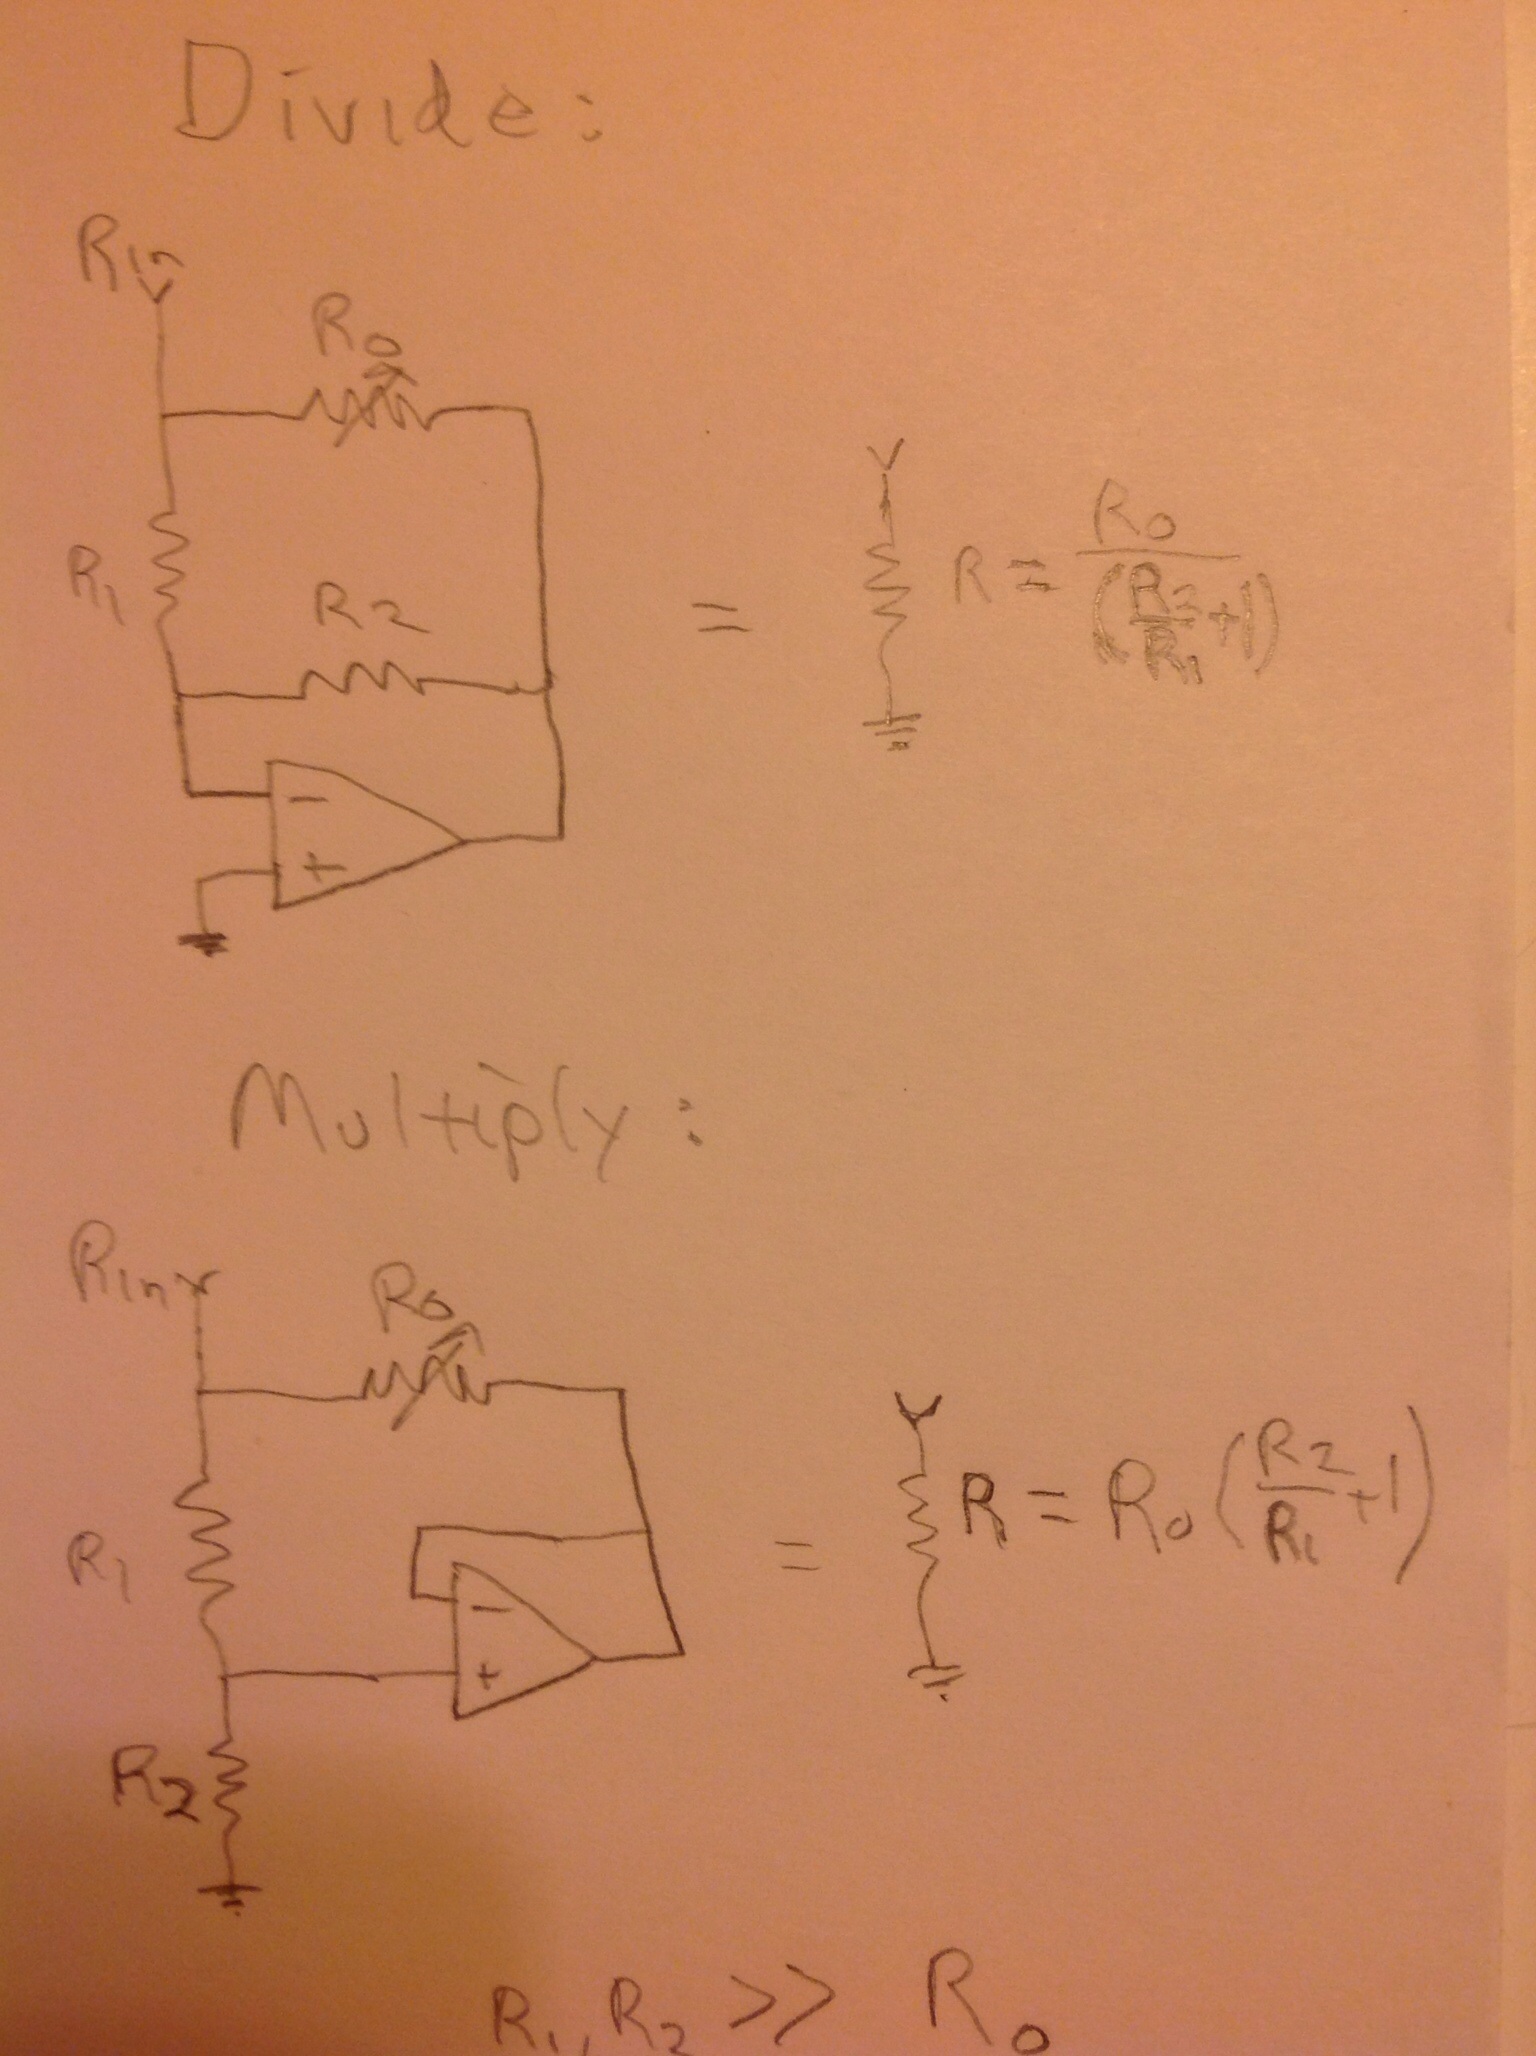 Divide:
Rin
R0
R1
R2
−
+
=
R = R0 / (R2/R1 + 1)
Multiply:
Rin
R0
R1
−
+
R2
=
R = R0 (R2/R1 + 1)
R1, R2 >> R0